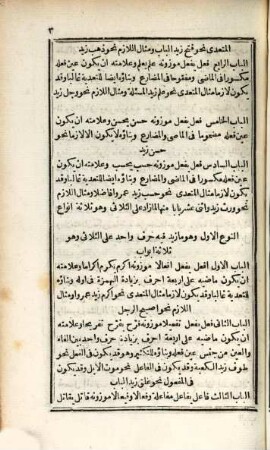 ٣
المتعدى نحو فتح زيد الباب ومثال اللازم نحو ذهب زيد
الباب الرابع فعل يفعل موزونه علم يعلم وعلامته ان يكون عين فعله
مكسورا فى الماضى ومفتوحا فى المضارع وبناؤه ايضا للتعدية غالبا وقد
يكون لازما مثال المتعدى نحو علم زيد المسئلة ومثال اللازم نحو وجل زيد
الباب الخامس فعل يفعل موزونه حسن يحسن وعلامته ان يكون
عين فعله مضموما فى الماضى والمضارع وبناؤه لا يكون الا لازما نحو
حسن زيد
الباب السادس فعل يفعل موزونه حسب يحسب وعلامته ان يكون
عين فعله مكسورا فى الماضى والمضارع وبناؤه ايضا للتعدية غالبا وقد
يكون لازما مثال المتعدى نحو حسب زيد عمرا فاضلا ومثال اللازم
نحو ورث زيد واثنى عشر بابا منها لما زاد على الثلاثى وهو ثلاثة انواع
النوع الاول وهو ما زيد فيه حرف واحد على الثلاثى وهو
ثلاثة ابواب
الباب الاول افعل يفعل افعالا موزونه اكرم يكرم اكراما وعلامته
ان يكون ماضيه على اربعة احرف بزيادة الهمزة فى اوله وبناؤه
للتعدية غالبا وقد يكون لازما مثال المتعدى نحو اكرم زيد عمرا ومثال
اللازم نحو اصبح الرجل
الباب الثانى فعل يفعل تفعيلا موزونه فرح يفرح تفريحا وعلامته
ان يكون ماضيه على اربعة احرف بزيادة حرف واحد بين الفاء
والعين من جنس عين فعله وبناؤه للتكثير وهو قد يكون فى الفعل نحو
طوف زيد الكعبة وقد يكون فى الفاعل نحو موت الابل وقد يكون
فى المفعول نحو غلق زيد الباب
الباب الثالث فاعل يفاعل مفاعلة وفعالا وفيعالا موزونه قاتل يقاتل